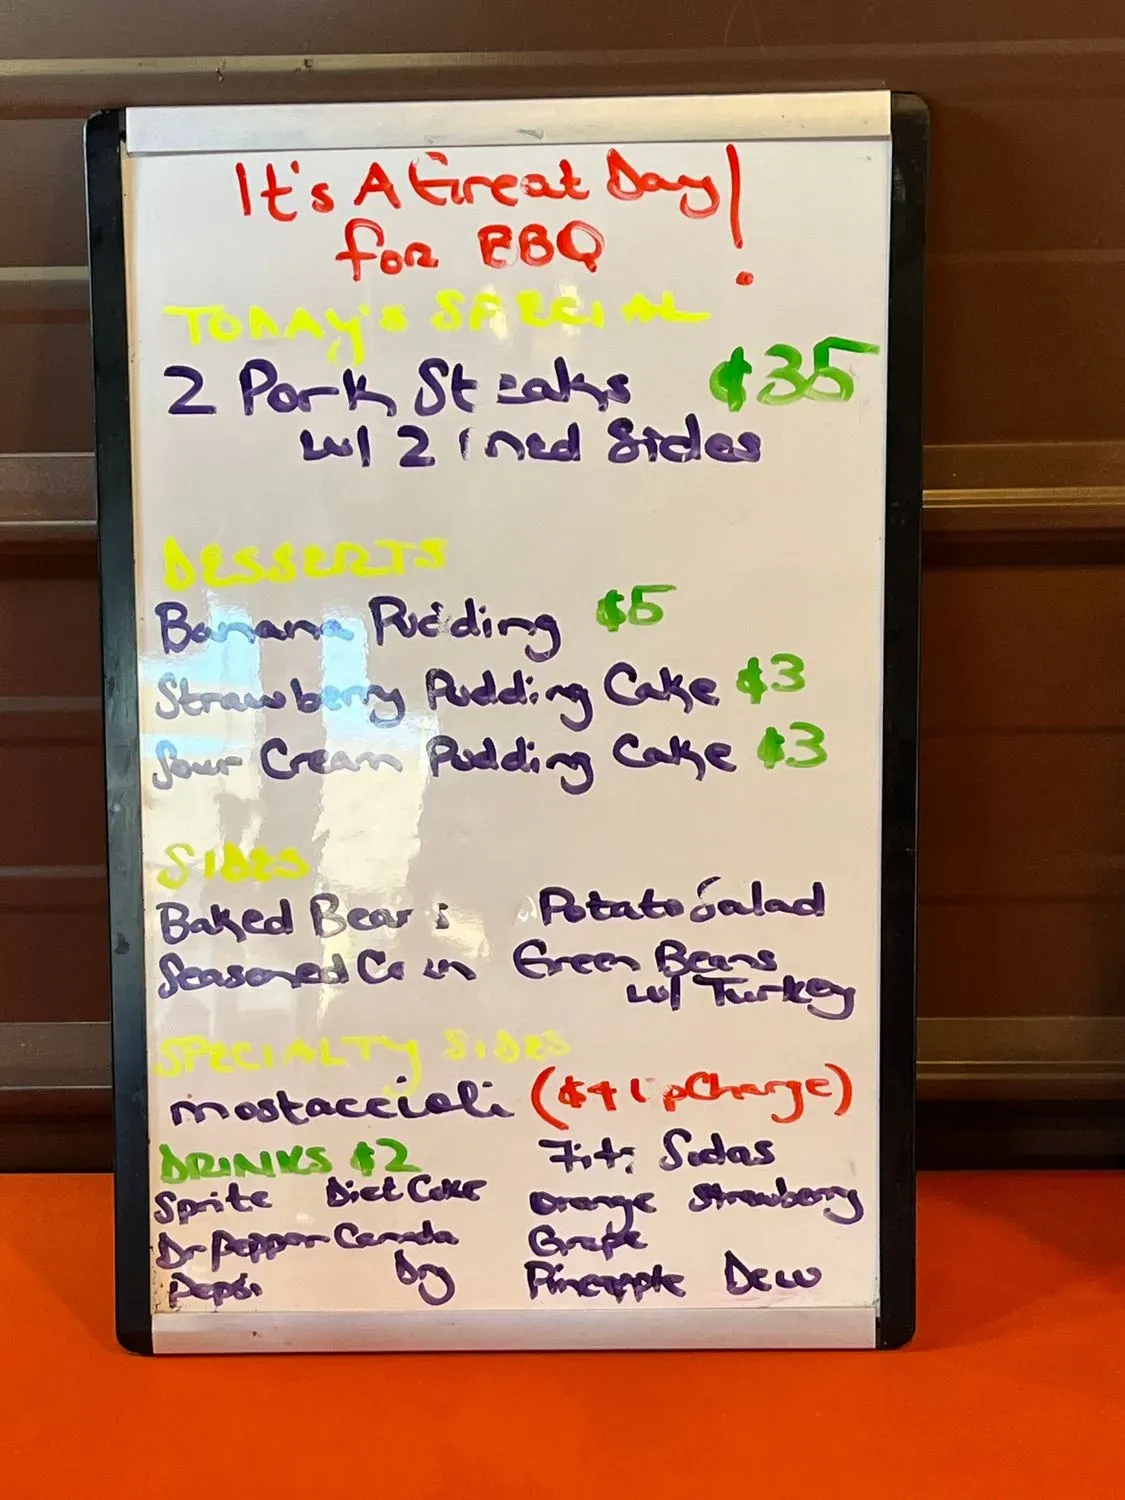 It's A Great Day!
for BBQ
TODAY'S SPECIAL
2 Pork Steaks $35
w/ 2 Sides
DESSERTS
Banana Pudding $5
Strawberry Pudding Cake $3
Sour Cream Pudding Cake $3
SIDES
Baked Beans Potato Salad
Seasoned Corn Green Beans
w/ Turkey
SPECIALTY SIDES
mostaccioli ($4 upCharge)
DRINKS $2 Fitz Sodas
Sprite Diet Coke Orange Strawberry
Dr Pepper Canada Grape
Pepsi Dry Pineapple Dew